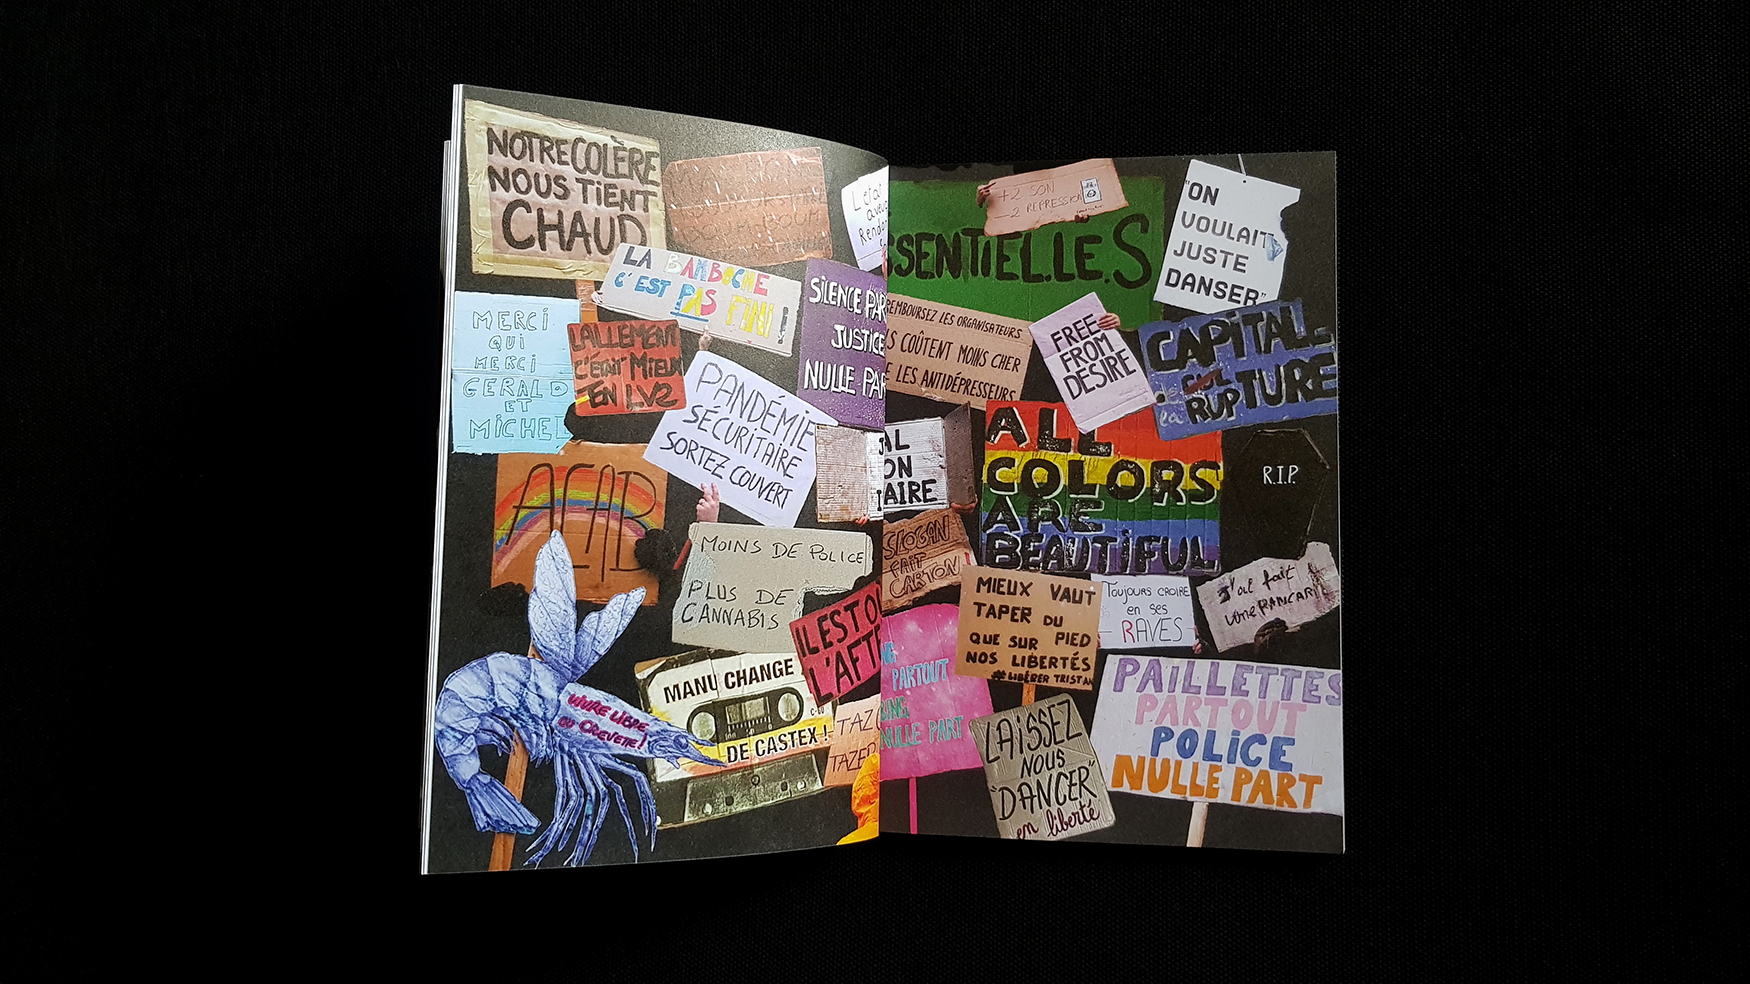 NOTRE COLÈRE
NOUS TIENT
CHAUD
LA BAMBOCHE
C'EST PAS FINI !
SILENCE PAR
JUSTICE
NULLE PAR
MERCI
QUI
MERCI
GERALD
ET
MICHEL
LALLEMENT
C'ÉTAIT MIEUX
EN LV2
PANDÉMIE
SÉCURITAIRE
SORTEZ COUVERT
ACAB
MOINS DE POLICE
PLUS DE
CANNABIS
IL EST OÙ
L'AFTE
MANU CHANGE
C-60
DE CASTEX !
VIVRE LIBRE
OU CREVETE !
TAZ
TAZER
+2 SON
-2 REPRESSION
SSENTIEL.LE.S
"ON
VOULAIT
JUSTE
DANSER"
REMBOURSEZ LES ORGANISATEURS
S COÛTENT MOINS CHER
E LES ANTIDÉPRESSEURS
FREE
FROM
DESIRE
CAPITAL
la RUPTURE
AL
ON
AIRE
ALL
COLORS
ARE
BEAUTIFUL
R.I.P.
SLOGAN
FAIT
CARTON
MIEUX VAUT
TAPER DU
QUE SUR PIED
NOS LIBERTÉS
#LIBÉRER TRISTAN
TOUJOURS CROIRE
en ses
RAVES
J'ai fait
une PANCAR
NG
PARTOUT
NULLE PART
LAISSEZ
NOUS
"DANCER"
en liberté
PAILLETTES
PARTOUT
POLICE
NULLE PART